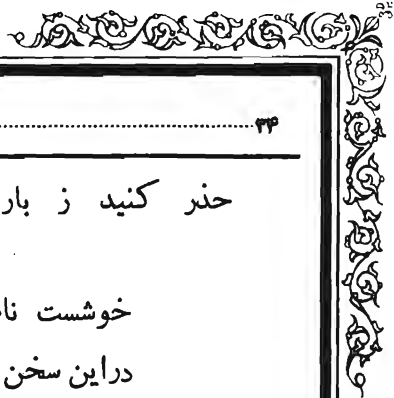 ۳۴
حذر کنید ز بار
خوشست
دراین سخن